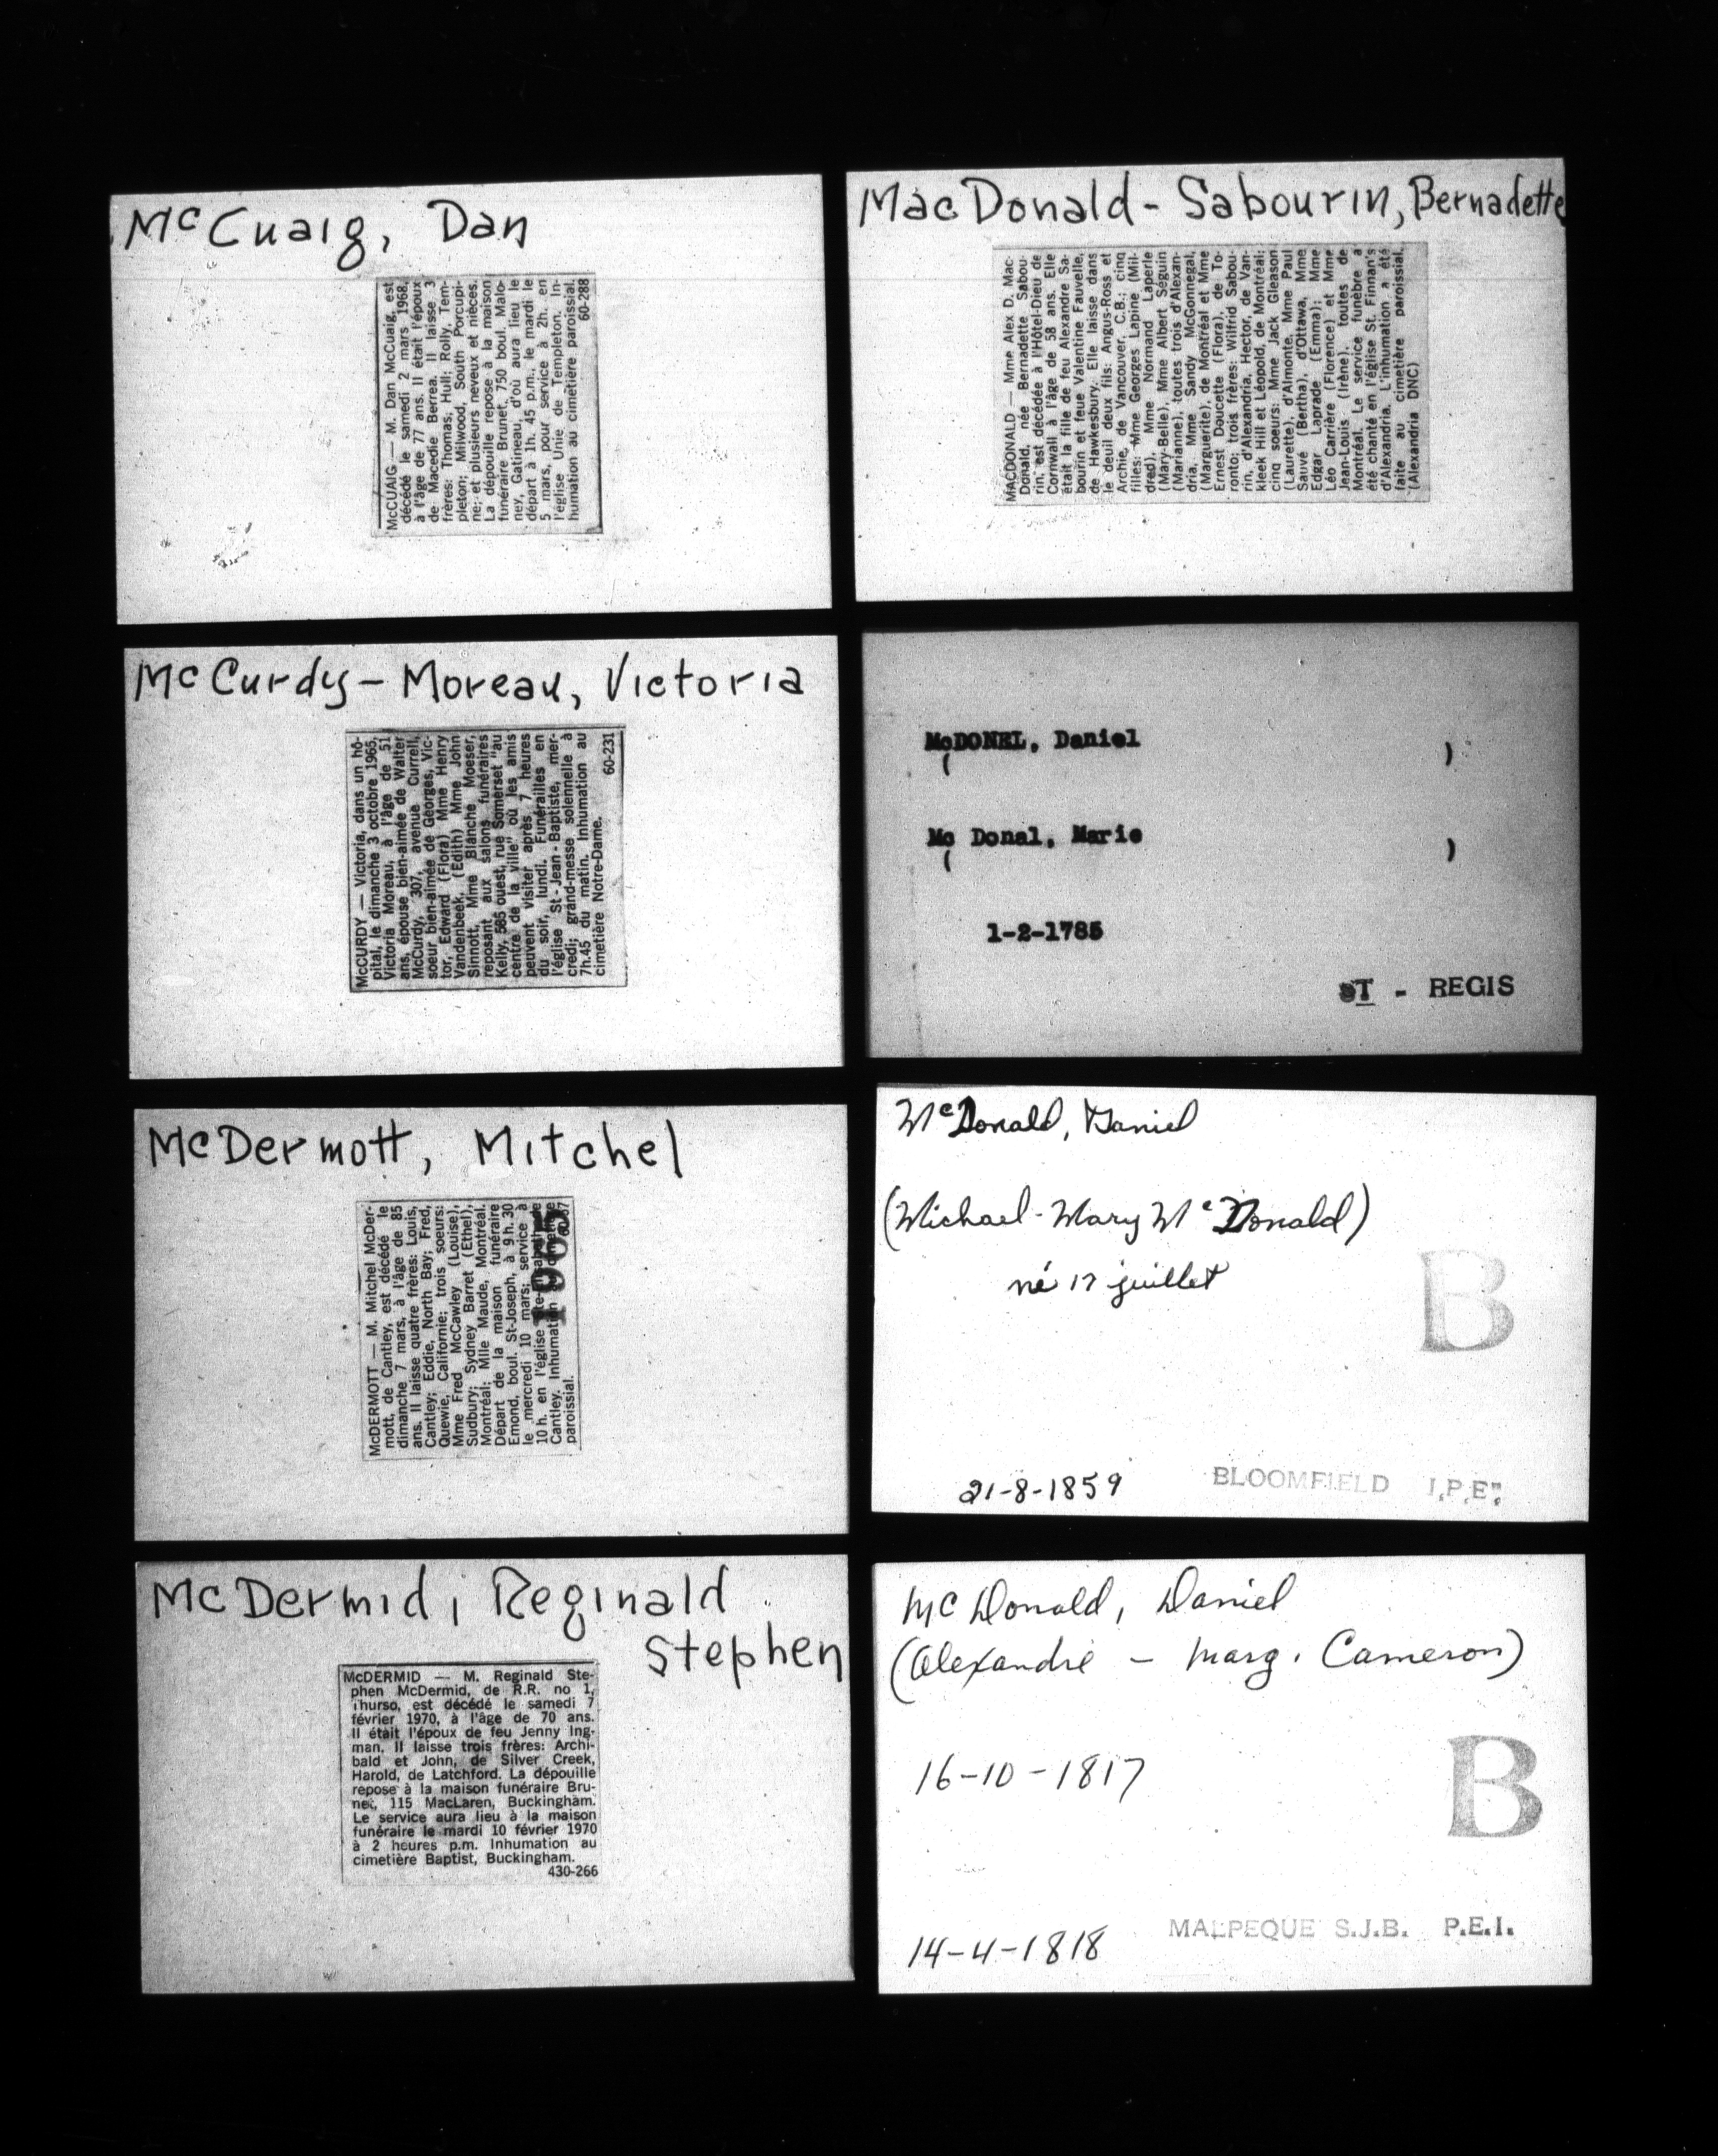 McCuaig, Dan
McCUAIG — M. Dan McCuaig, est
décédé le samedi 2 mars 1968,
à l'âge de 77 ans. Il était l'époux
de Macedie Berrea. Il laisse 3
frères: Thomas, Hull; Rolly, Tem-
pleton; Milwood, South Porcupi-
ne; et plusieurs neveux et nièces.
La dépouille repose à la maison
funéraire Brunet, 750 boul. Malo-
ney, Gatineau, d'où aura lieu le
départ à 1h. 45 p.m., le mardi le
5 mars, pour service à 2h. en
l'église Unie de Templeton. In-
humation au cimetière paroissial.
60-288
McCurdy-Moreau, Victoria
McCURDY — Victoria, dans un hô-
pital, le dimanche 3 octobre 1965,
Victoria Moreau, à l'âge de 51
ans, épouse bien-aimée de Walter
McCurdy, 307, avenue Currell,
soeur bien-aimée de Georges, Vic-
tor, Edward (Flora) Mme Henry
Vandenbeek, (Edith) Mme John
Sinnott, Mme Blanche Moeser,
reposant aux salons funéraires
Kelly, 585 ouest, rue Somerset "au
centre de la ville" où les amis
peuvent visiter après 7 heures
du soir, lundi. Funérailles en
l'église St-Jean-Baptiste, mer-
credi; grand-messe solennelle à
7h.45 du matin. Inhumation au
cimetière Notre-Dame.
60-231
McDermott, Mitchel
McDERMOTT — M. Mitchel McDer-
mott, de Cantley, est décédé le
dimanche 7 mars, à l'âge de 85
ans. Il laisse quatre frères: Louis,
Cantley; Eddie, North Bay; Fred,
Quewie, Californie; trois soeurs:
Mme Fred McCawley (Louise),
Sudbury; Sydney Barret (Ethel),
Montréal; Mlle Maude, Montréal.
Départ de la maison funéraire
Emond, boul. St-Joseph, à 9 h. 30
le mercredi 10 mars; service à
10 h. en l'église de
Cantley. Inhumation
paroissial.
1965
McDermid, Reginald
Stephen
McDERMID — M. Reginald Ste-
phen McDermid, de R.R. no 1,
Thurso, est décédé le samedi 7
février 1970, à l'âge de 70 ans.
Il était l'époux de feu Jenny Ing-
man. Il laisse trois frères: Archi-
bald et John, de Silver Creek,
Harold, de Latchford. La dépouille
repose à la maison funéraire Bru-
net, 115 MacLaren, Buckingham.
Le service aura lieu à la maison
funéraire le mardi 10 février 1970
à 2 heures p.m. Inhumation au
cimetière Baptist, Buckingham.
430-266
MacDonald-Sabourin, Bernadette
MACDONALD — Mme Alex D. Mac-
Donald, née Bernadette Sabou-
rin, est décédée à l'Hôtel-Dieu de
Cornwall à l'âge de 58 ans. Elle
était la fille de feu Alexandre Sa-
bourin et feue Valentine Fauvelle,
de Hawkesbury. Elle laisse dans
le deuil deux fils: Angus-Ross et
Archie, de Vancouver, C.B.; cinq
filles: Mme Georges Lapine (Mil-
dred), Mme Normand Laperle
(Mary-Belle), Mme Albert Séguin
(Marianne), toutes trois d'Alexan-
dria, Mme Sandy McGonnegal,
(Marguerite), de Montréal et Mme
Ernest Doucette (Flora), de To-
ronto; trois frères: Wilfrid Sabou-
rin, d'Alexandria, Hector, de Van-
kleek Hill et Léopold, de Montréal;
cinq soeurs: Mme Jack Gleason
(Laurette), d'Almonte, Mme Paul
Sauvé (Bertha), d'Ottawa, Mme
Edgar Laprade (Emma); Mme
Léo Carrière (Florence) et Mme
Jean-Louis (Irène), toutes de
Montréal. Le service funèbre a
été chanté en l'église St. Finnan's
d'Alexandria. L'inhumation a été
faite au cimetière paroissial.
(Alexandria DNC)
McDONEL, Daniel
( )
Mc Donal, Marie
( )
1-2-1785
ST - REGIS
McDonald, Daniel
(Michael-Mary McDonald)
né 17 juillet
B
21-8-1859 BLOOMFIELD I.P.E.
McDonald, Daniel
(Alexandre - Marg. Cameron)
16-10-1817
B
14-4-1818 MALPEQUE S.J.B. P.E.I.